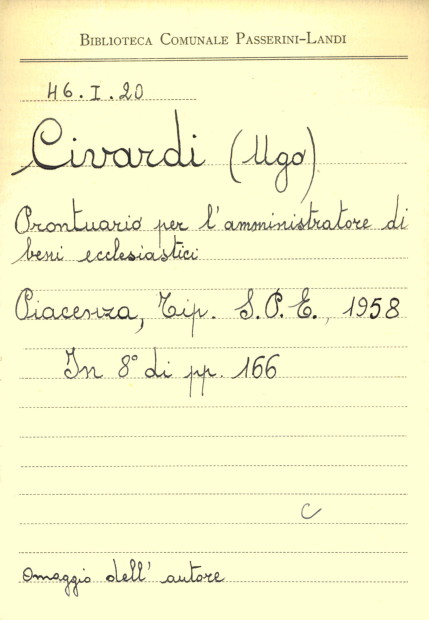 Biblioteca Comunale Passerini-Landi
46.I.20
Civardi (Ugo)
Prontuario per l'amministratore di
beni ecclesiastici
Piacenza, Tip. S.P.E., 1958
In 8° di pp. 166
C
Omaggio dell'autore